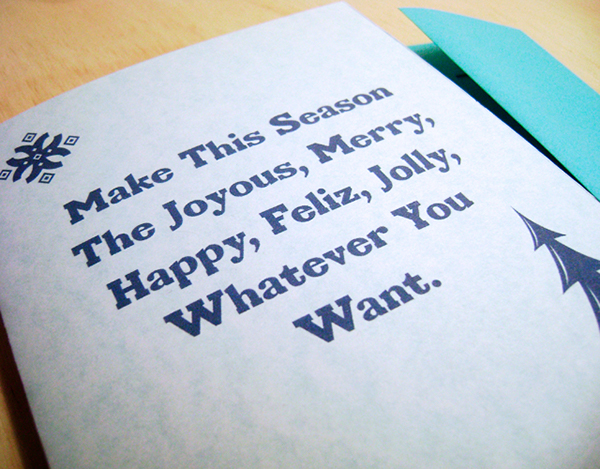 Make This Season
The Joyous, Merry,
Happy, Feliz, Jolly,
Whatever You
Want.